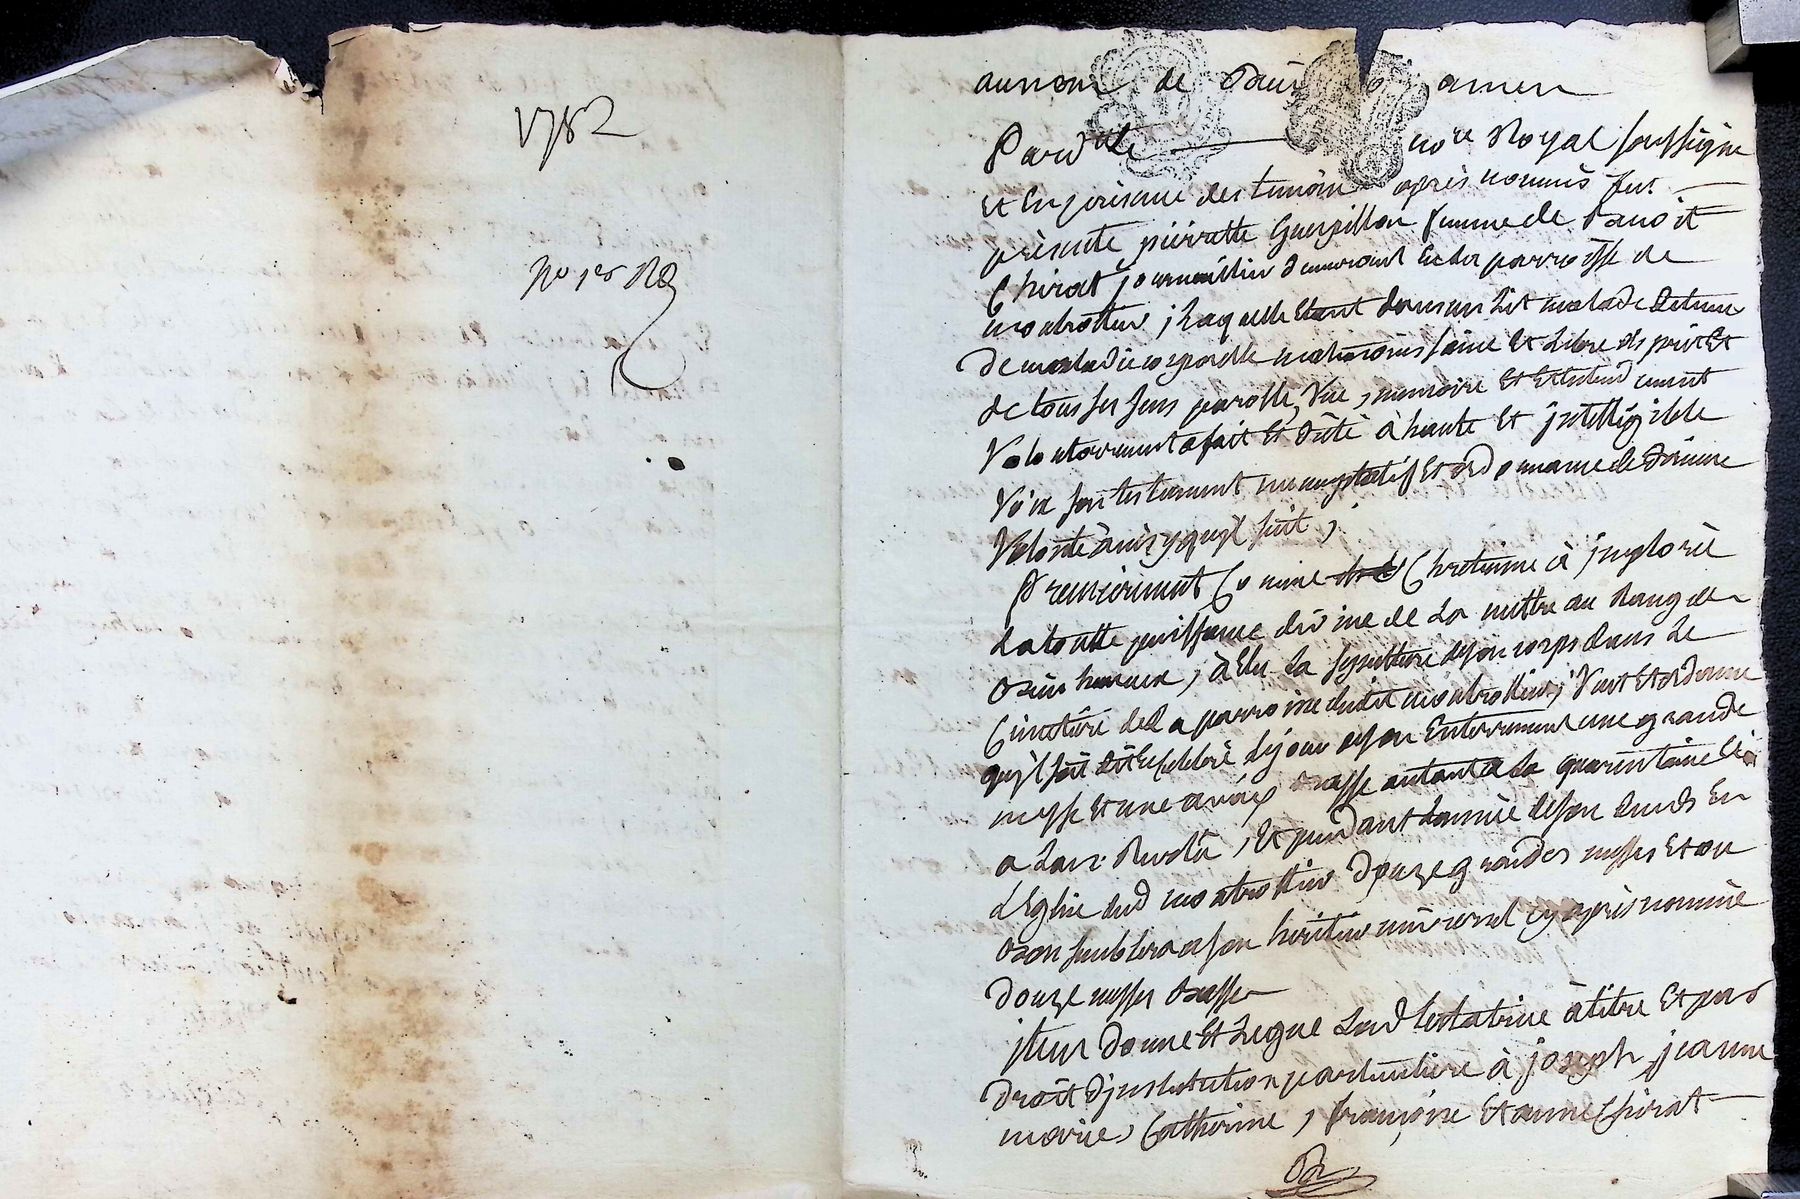 1782
au nom de Dieu amen
Pardt le nore Royal soussigné
Et En présence des temoins après nommés fut
présente pierrette Guerpillon femme de Benoit
Chirat journaillier demeurant En la parroisse de
montrottier, Laquelle Etant dans un Lit malade detenue
de maladie corporelle neatmoins saine Et Libre d'Esprit Et
de tous ses sens parolle, Vue, memoire Et Entendement
Volontairement a fait Et dicté à haute Et jntelligible
Voix son testament nuncupatif Et ordonnance de derniere
Volonté ainsy qu'jl suit,
Premierement Comme Chretienne à jmploré
La toutte puissance divine de La mettre au Rang des
bien heureux, à Elu La sepulture de son corps dans Le
Cimetière de La parroisse dudit montrottier, Veut Et ordonne
qu'jl soit dit Et celebré Le jour de son Enterrement une grande
messe Et une à voix basse autant a La quarentaine Et
a Lan: Revolu, Et pendant Lannée de son deuds En
L'Eglise dud montrottier douze grandes messes Et ou
bon semblera a son heritier universel cy après nommé
douze messes basses
jtem donne Et Legue Lad testatrice à titre Et par
droit d'jnstitution particuliere à joseph, jeanne
marie, Catherine, françoise Et anne Chirat